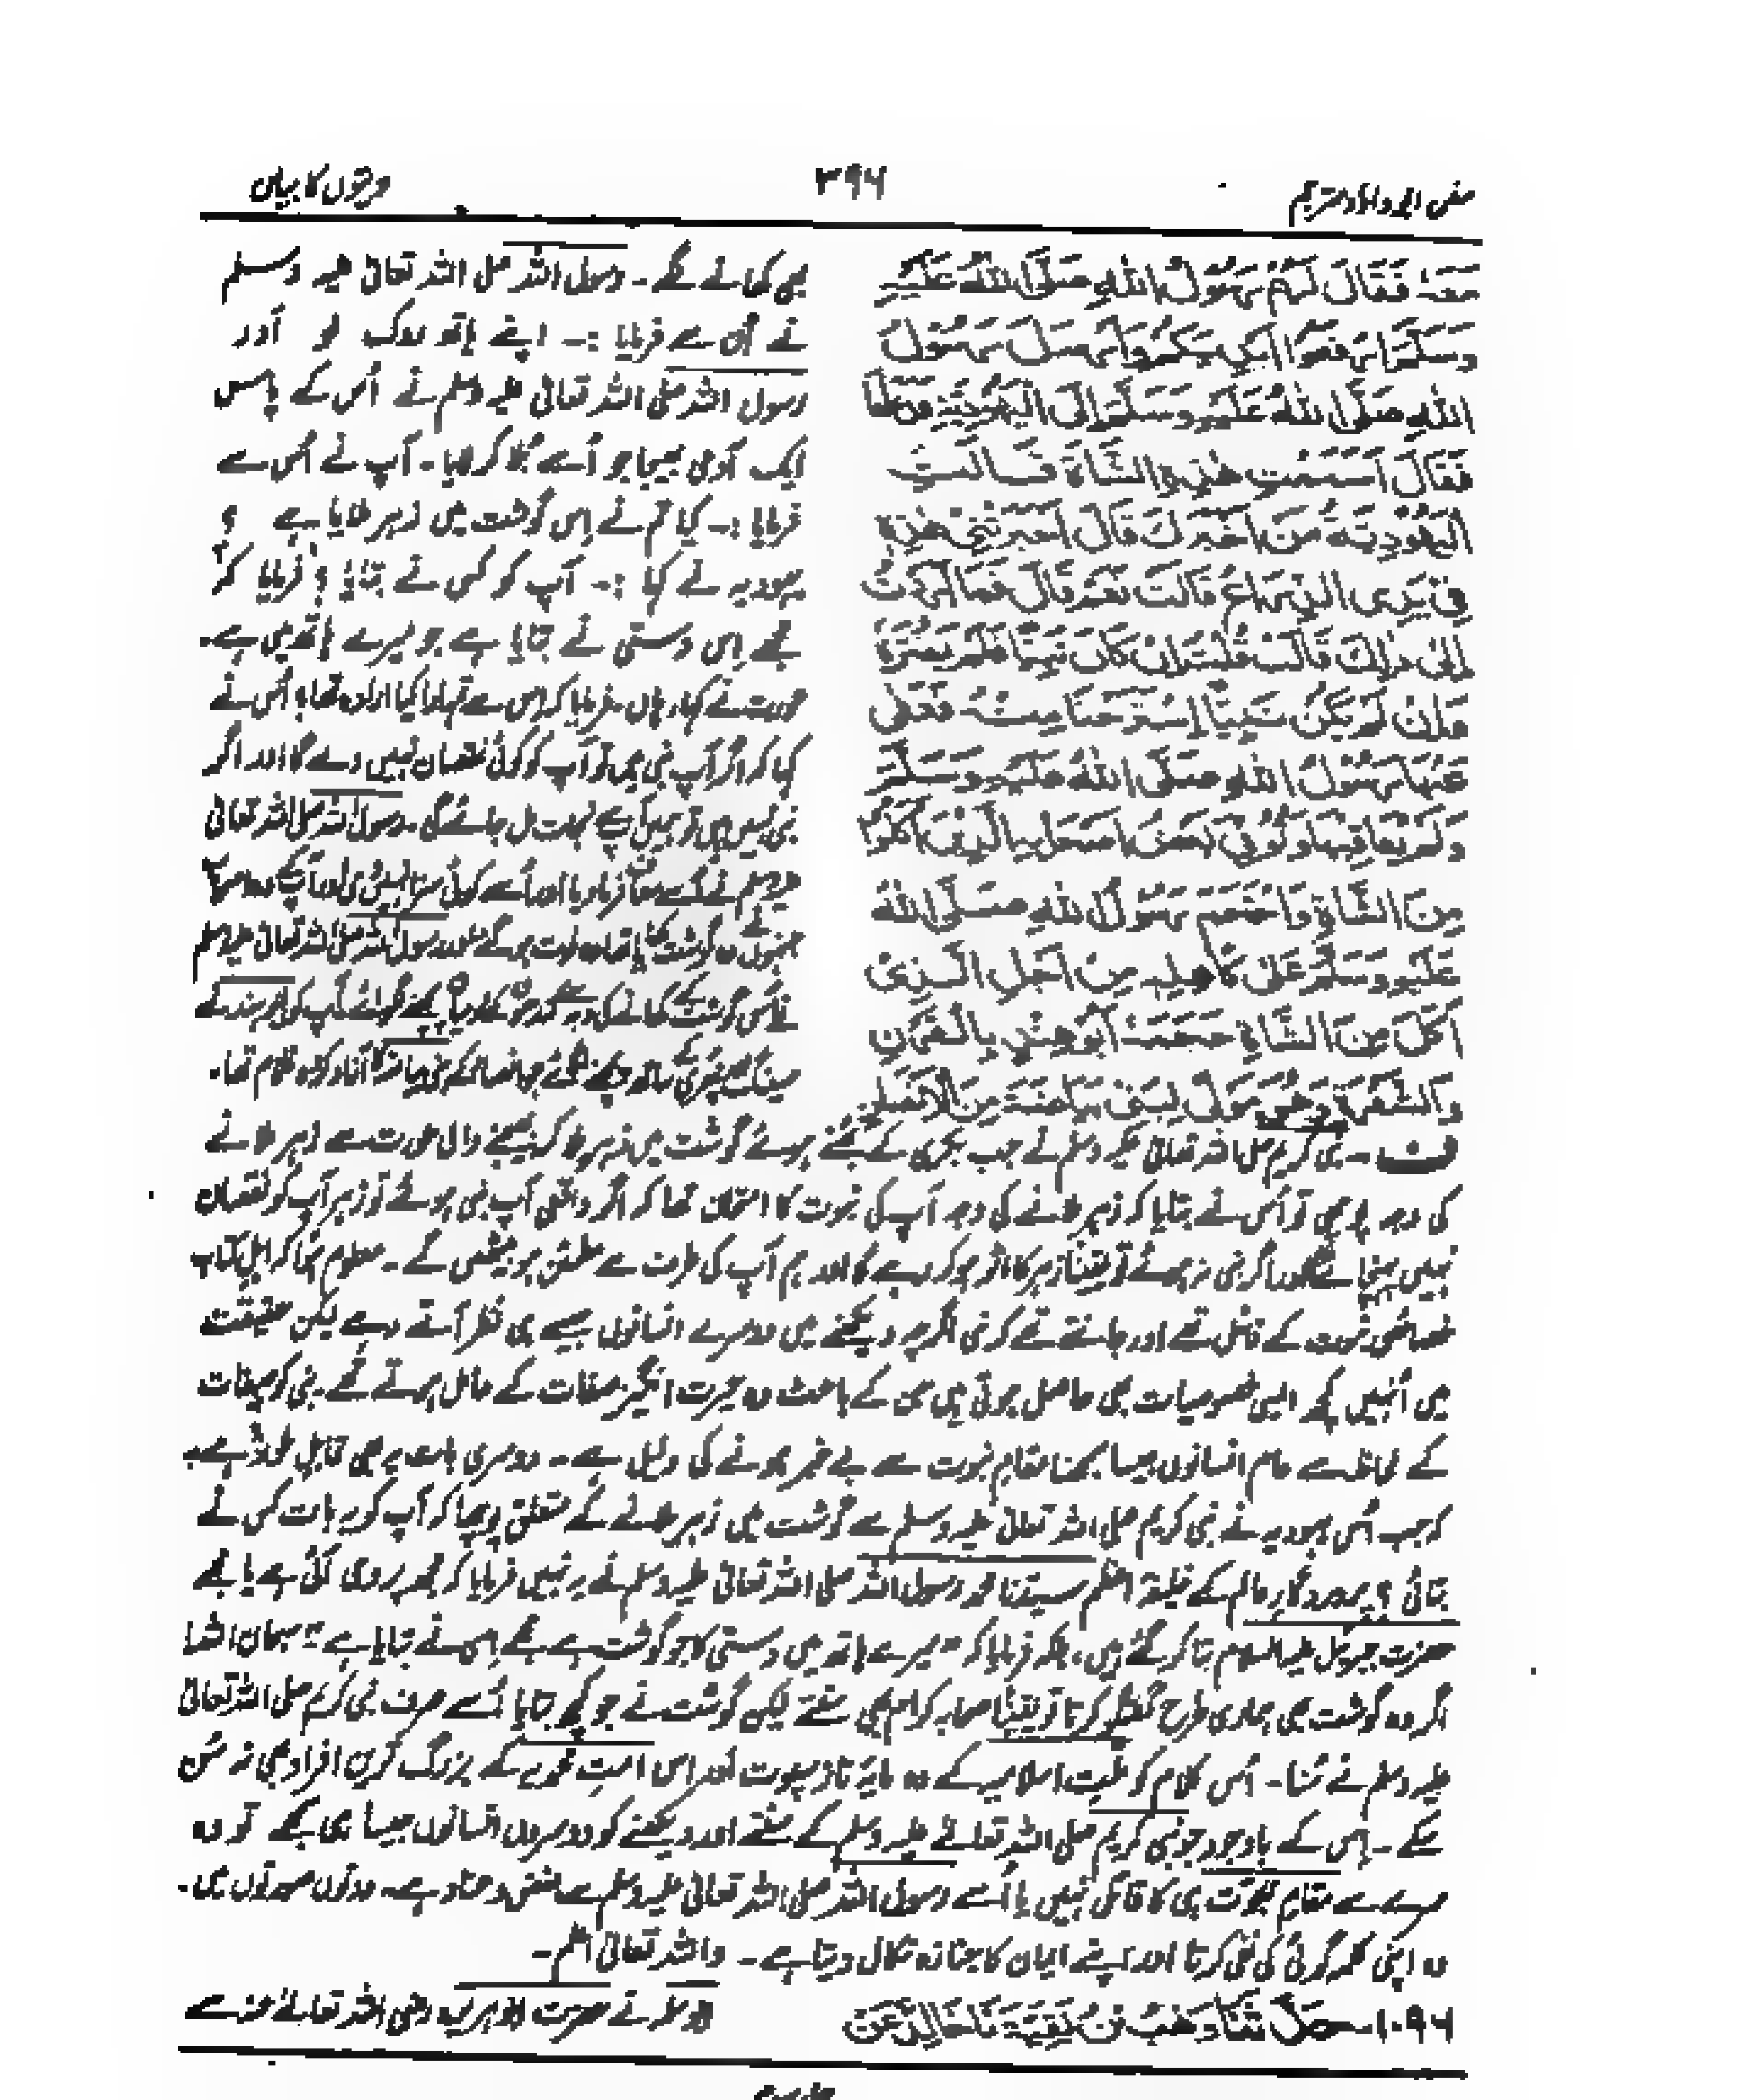 سنن ابوداؤد مترجم
۳۹۶
دیتوں کا بیان
مَعَهٗ فَقَالَ لَهُمْ رَسُوْلُ اللهِ صَلَّى اللهُ عَلَيْهِ
وَسَلَّمَ ارْفَعُوْا اَيْدِيَكُمْ وَاَرْسَلَ رَسُوْلُ
اللهِ صَلَّى اللهُ عَلَيْهِ وَسَلَّمَ اِلَى الْيَهُوْدِيَّةِ فَدَعَاهَا
فَقَالَ اَسَمَمْتِ هٰذِهِ الشَّاةَ قَالَتِ
الْيَهُوْدِيَّةُ مَنْ اَخْبَرَكَ قَالَ اَخْبَرَتْنِيْ هٰذِهٖ
فِيْ يَدِى الذِّرَاعُ قَالَتْ نَعَمْ قَالَ فَمَا اَرَدْتِّ
اِلٰى ذٰلِكَ قَالَتْ قُلْتُ اِنْ كَانَ نَبِيًّا فَلَمْ يَضُرَّهٗ
وَاِنْ لَمْ يَكُنْ نَبِيًّا اِسْتَرَحْنَا مِنْهُ فَعَفٰى
عَنْهَا رَسُوْلُ اللهِ صَلَّى اللهُ عَلَيْهِ وَسَلَّمَ
وَلَمْ يُعَاقِبْهَا وَتُوُفِّيَ بَعْضُ اَصْحَابِهِ الَّذِيْنَ اَكَلُوْا
مِنَ الشَّاةِ وَاحْتَجَمَ رَسُوْلُ اللهِ صَلَّى اللهُ
عَلَيْهِ وَسَلَّمَ عَلٰى كَاهِلِهٖ مِنْ اَجْلِ الَّذِيْ
اَكَلَ مِنَ الشَّاةِ حَجَمَهٗ اَبُوْ هِنْدٍ بِالْقَرْنِ
وَالشَّفْرَةِ وَهُوَ مَوْلًى لِبَنِيْ بَيَاضَةَ مِنَ الْاَنْصَارِ
بھی کھانے لگے۔ رسول اللہ صلی اللہ تعالیٰ علیہ وسلم
نے اُن سے فرمایا :۔ اپنے ہاتھ روک لو اور
رسول اللہ صلی اللہ تعالیٰ علیہ وسلم نے اُس کے پاس
ایک آدمی بھیجا جو اُسے بُلا کر لایا۔ آپ نے اُس سے
فرمایا :۔ کیا تم نے اِس گوشت میں زہر ملایا ہے ؟
یہودیہ نے کہا :۔ آپ کو کس نے بتایا ؟ فرمایا کہ
مجھے اِس دستی نے بتایا ہے جو میرے ہاتھ میں ہے۔
عورت نے کہا، ہاں۔ فرمایا کہ اِس سے تمہارا کیا ارادہ تھا؟ اُس نے
کہا کہ اگر آپ نبی ہیں تو آپ کو کوئی نقصان نہیں دے گا اور اگر
نبی نہیں ہیں تو ہمیں آپ سے نجات مل جائے گی۔ رسول اللہ صلی اللہ تعالیٰ
علیہ وسلم نے اُسے معاف فرما دیا اور اُسے کوئی سزا نہیں دی اور آپکے وہ اصحاب
جنہوں نے گوشت کھایا تھا فوت ہو گئے اور رسول اللہ صلی اللہ تعالیٰ علیہ وسلم
سینگ اور چھری کے ساتھ پچھنے لگائے جو انصار کے بنی بیاضہ کا آزاد کردہ غلام تھا۔
ف ۔ نبی کریم صلی اللہ تعالیٰ علیہ وسلم نے جب بکری کے بھنے ہوئے گوشت میں زہر ملا کر بھیجنے والی عورت سے زہر ملانے
کی وجہ پوچھی تو اُس نے بتایا کہ زہر ملانے کی وجہ آپ کی نبوت کا امتحان تھا کہ اگر واقعی آپ نبی ہوئے تو زہر آپ کو نقصان
نہیں پہنچائے گا اور اگر نبی نہ ہوئے تو یقیناً زہر کا اثر ہو کر رہے گا اور ہم آپ کی طرف سے مطمئن ہو بیٹھیں گے۔ معلوم ہوا کہ اہلِ کتاب
خصائصِ نبوت کے قائل تھے اور جانتے تھے کہ نبی اگرچہ دیکھنے میں دوسرے انسانوں جیسے ہی نظر آتے رہے لیکن حقیقت
میں اُنہیں کچھ ایسی خصوصیات بھی حاصل ہوتی ہیں جن کے باعث وہ حیرت انگیز صفات کے حامل ہوتے تھے۔ نبی کو صفات
کے لحاظ سے عام انسانوں جیسا سمجھنا مقامِ نبوت سے بے خبر ہونے کی دلیل ہے۔ دوسری بات یہ بھی قابلِ غور ہے
کہ جب اُس یہودیہ نے نبی کریم صلی اللہ تعالیٰ علیہ وسلم سے گوشت میں زہر ملانے کے متعلق پوچھا کہ آپ کو یہ بات کس نے
بتائی ؟ پروردگارِ عالم کے خلیفۂ اعظم سیدنا محمد رسول اللہ صلی اللہ تعالیٰ علیہ وسلم نے یہ نہیں فرمایا کہ مجھ پر وحی آئی ہے یا مجھے
حضرت جبریل علیہ السلام بتا کر گئے ہیں، بلکہ فرمایا کہ "میرے ہاتھ میں دستی کا جو گوشت ہے مجھے اِس نے بتایا ہے" سبحان اللہ!
اگر وہ گوشت بھی ہماری طرح گفتگو کرتا تو یقیناً صحابہ کرام بھی سنتے لیکن گوشت نے جو کچھ بتایا اُسے صرف نبی کریم صلی اللہ تعالیٰ
علیہ وسلم نے سُنا۔ اُس کلام کو ملتِ اسلامیہ کے وہ مایۂ ناز سپوت اور اِس امتِ محمدیہ کے بزرگ ترین افراد بھی نہ سُن
سکے۔ اِس کے باوجود جو نبی کریم صلی اللہ تعالیٰ علیہ وسلم کے سننے اور دیکھنے کو دوسروں انسانوں جیسا ہی سمجھے تو وہ
سرے سے مقامِ نبوت ہی کا قائل نہیں یا اُسے رسول اللہ صلی اللہ تعالیٰ علیہ وسلم سے بغض و عناد ہے۔ دونوں صورتوں میں۔
وہ اپنی کلمہ گوئی کی نفی کرتا اور اپنے ایمان کا جنازہ نکال دیتا ہے۔ واللہ تعالیٰ اعلم۔
۱۰۹۶۔ حَدَّثَنَا وَهْبُ بْنُ بَقِيَّةَ نَا خَالِدٌ عَنْ
ابوسلمہ نے حضرت ابوہریرہ رضی اللہ تعالیٰ عنہ سے